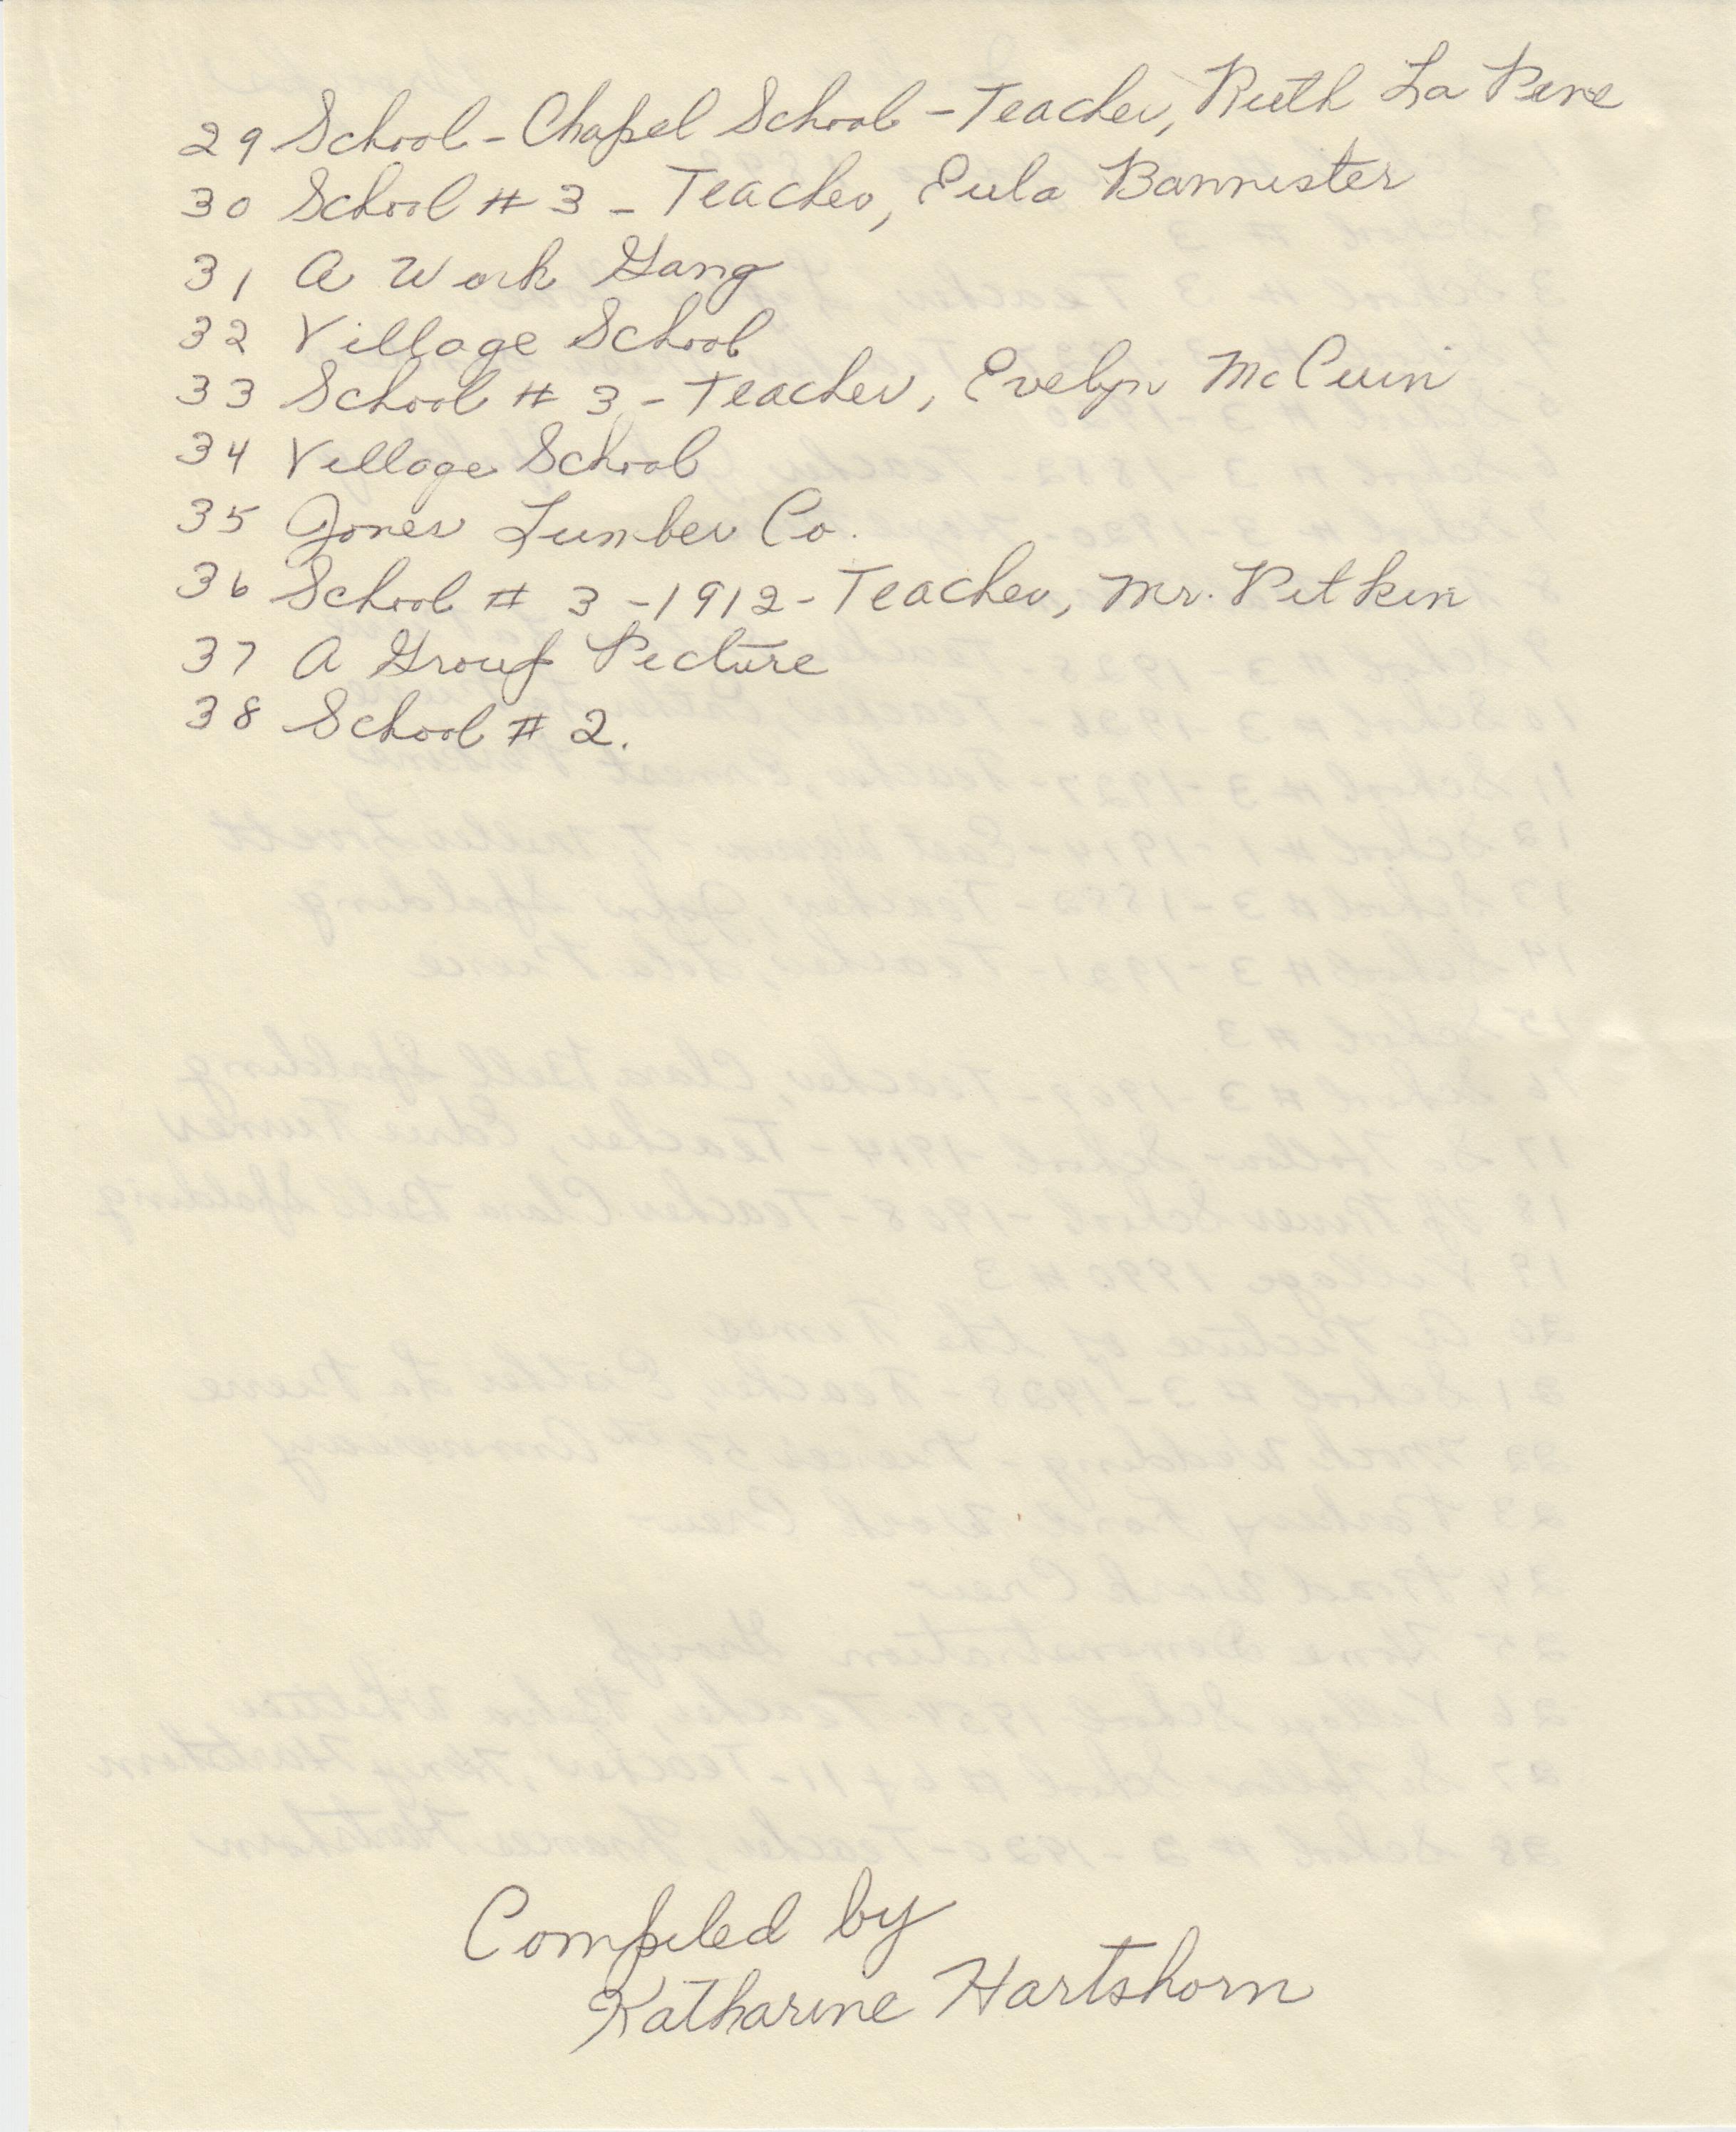 29 School - Chapel School - Teacher, Ruth La Pine
30 School # 3 - Teacher, Eula Bannister
31 A Work Gang
32 Village School
33 School # 3 - Teacher, Evelyn McCuin
34 Village School
35 Jones Lumber Co.
36 School # 3 - 1912 - Teacher, Mr. Pitkin
37 A Group Picture
38 School # 2.
Compiled by
Katharine Hartshorn